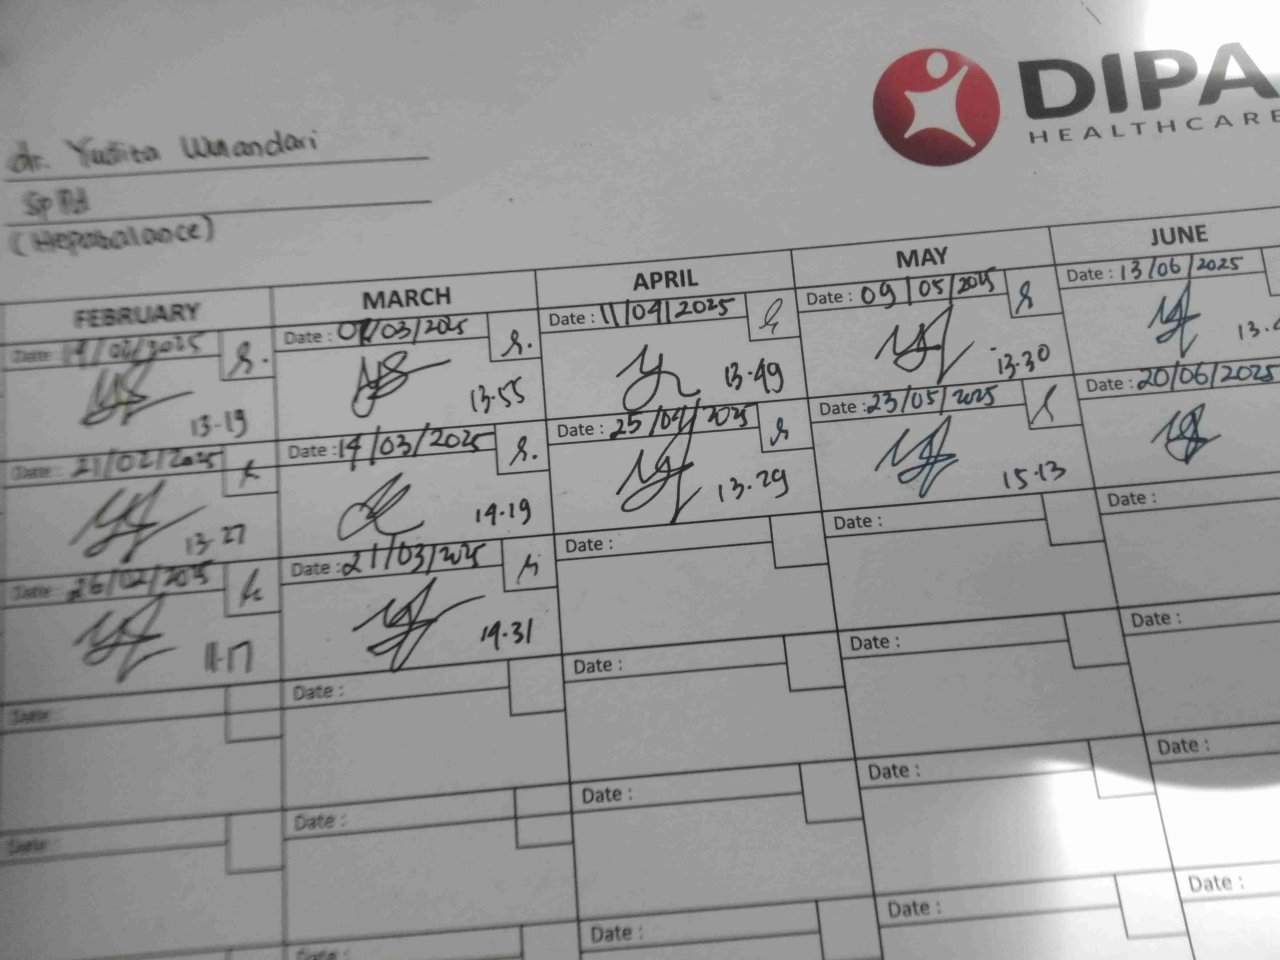 DIPA
HEALTHCARE
dr. Yudita Wulandari
SpPd
(Hepabalance)
FEBRUARY MARCH APRIL MAY JUNE
Date : 14/02/2025 Date : 07/03/2025 Date : 11/04/2025 Date : 09/05/2025 Date : 13/06/2025
13-19 13-55 13-49 13-30
Date : 21/02/2025 Date : 14/03/2025 Date : 25/04/2025 Date : 23/05/2025 Date : 20/06/2025
13-27 14-19 13-29 15-13
Date : 26/02/2025 Date : 21/03/2025 Date : Date : Date :
11-17 14-31
Date : Date : Date : Date : Date :
Date : Date : Date : Date : Date :
Date : Date : Date : Date :